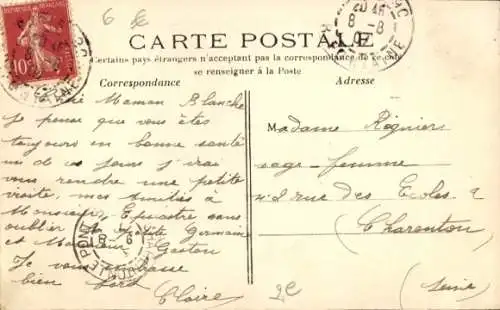 6 €
CARTE POSTALE
Certains pays étrangers n'acceptant pas la correspondance de ce côté
se renseigner à la Poste
Correspondance
Adresse
10
Maman Blanche
Je pense que vous êtes
toujours en bonne santé
un de ces jours j'irai
vous rendre une petite
visite, mes amitiés à
Monsieur, sans
oublier la petite Germaine
et Monsieur Gaston
Je vous embrasse
bien fort
Claire
Madame Régnier
sage-femme
n: 2 rue des Ecoles 2
(Charenton
(Seine)
2€